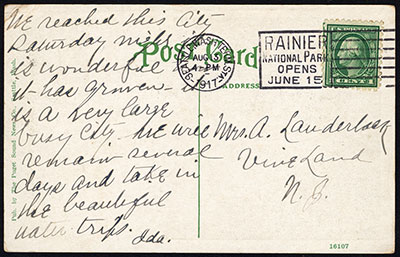 We reached this City
Saturday night
is wonderful
it has grown
is a very large
busy City. We will
remain several
days and take in
the beautiful
water trips.
Ida.
Post Card
SEATTLE, WASH.
AUG
4 PM
1917
RAINIER
NATIONAL PARK
OPENS
JUNE 15
ADDRESS
Mrs. A. Lauderback
Vineland
N. J.
Pub. by The Puget Sound News Co., Seattle, Wash.
16107